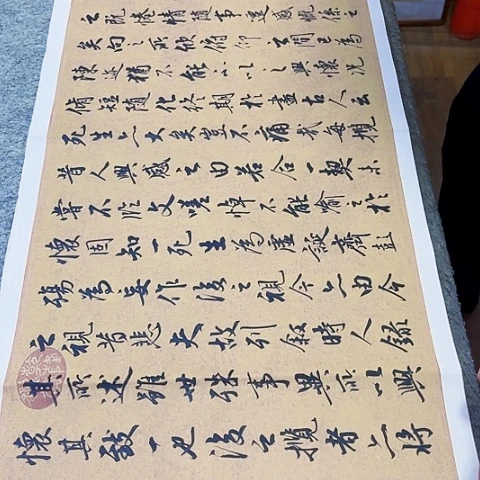 之既惓情隨事遷感慨係之
矣向之所欣俯仰之間已為
陳迹猶不能不以之興懷況
脩短隨化終期於盡古人云
死生亦大矣豈不痛哉每攬
昔人興感之由若合一契未
嘗不臨文嗟悼不能喻之於
懷固知一死生為虛誕齊彭
殤為妄作後之視今亦由今
之視昔悲夫故列叙時人錄
其所述雖世殊事異所以興
懷其致一也後之攬者亦將